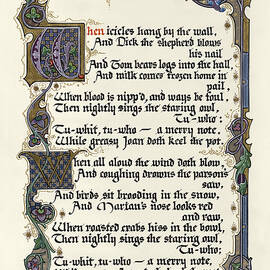 When icicles hang by the wall,
And Dick the shepherd blows
his nail
And Tom bears logs into the hall,
And milk comes frozen home in
pail,
When blood is nipp'd, and ways be foul,
Then nightly sings the staring owl,
Tu-who:
Tu-whit, tu-who — a merry note,
While greasy Joan doth keel the pot.
When all aloud the wind doth blow,
And coughing drowns the parsons
saw,
And birds sit brooding in the snow,
And Marian's nose looks red
and raw,
When roasted crabs hiss in the bowl,
Then nightly sings the staring owl,
Tu-who:
Tu-whit, tu-who — a merry note,